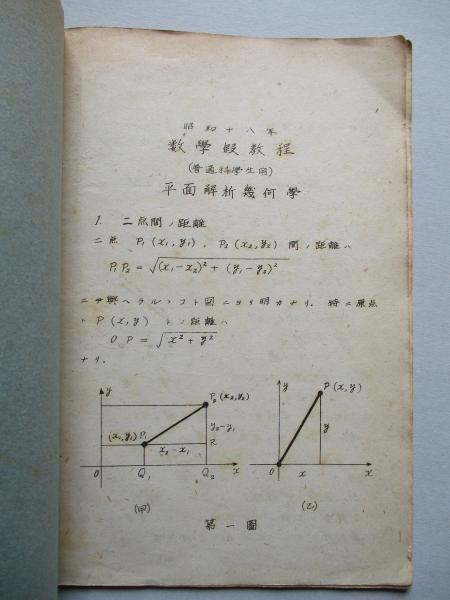 昭和十八年
数學假教程
(普通科學生用)
平面解析幾何學
1. 二点間ノ距離
二点 P₁(x₁,y₁), P₂(x₂,y₂) 間ノ距離ハ
P₁P₂ = √(x₁-x₂)² + (y₁-y₂)²
ニテ與ヘラルルコト図ニヨリ明カナリ. 特ニ原点
ト P(x,y) トノ距離ハ
OP = √x² + y²
ナリ.
y
P₂(x₂,y₂)
(x₁,y₁) P₁
y₂-y₁
x₂-x₁
R
O Q₁ Q₂ x
(甲)
y
P(x,y)
y
O x x
(乙)
第一圖